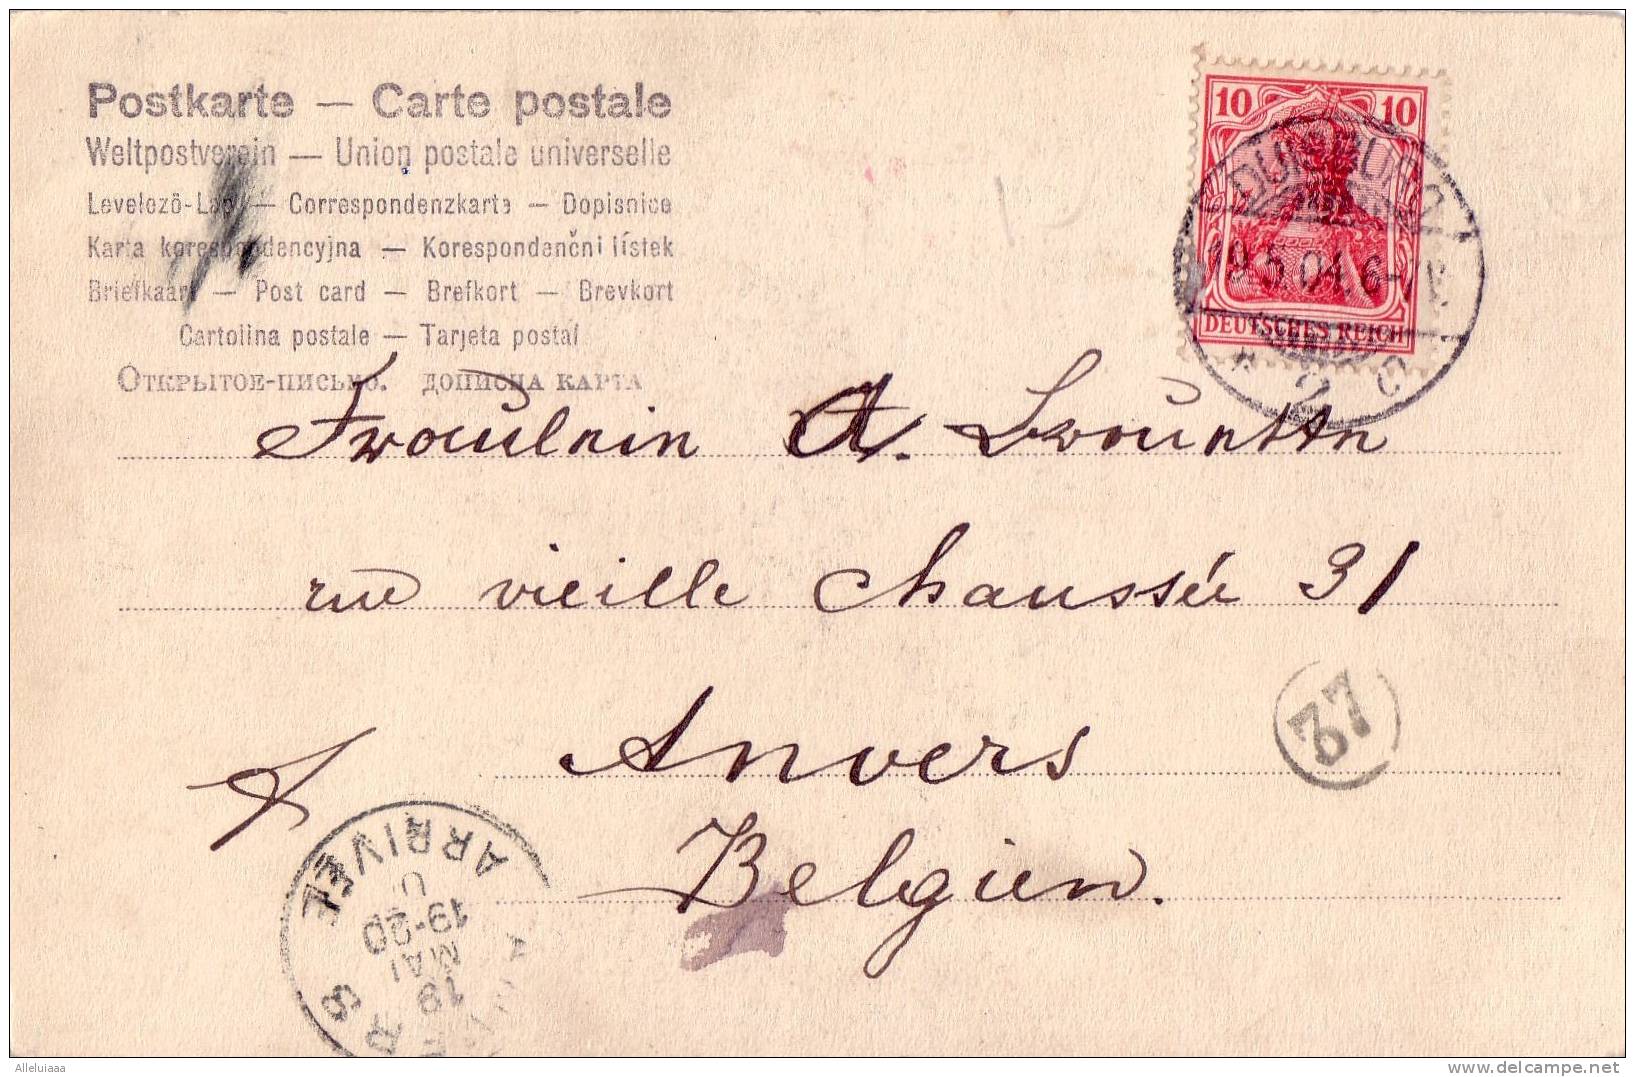 Postkarte — Carte postale
Weltpostverein — Union postale universelle
Levelezö-Lap — Correspondenzkarte — Dopisnice
Karta korespondencyjna — Korespondenční lístek
Briefkaart — Post card — Brefkort — Brevkort
Cartolina postale — Tarjeta postal
Открытое-письмо. дописна карта
10 10
DEUTSCHES REICH
DUISBURG
19.5.04. 6-7
* 2 C
Fräulein A.
rue vieille Chaussée 31
37
Anvers
Belgien.
ANVERS
19
MAI
19-20
ARRIVÉE
Alleluiaaa
www.delcampe.net